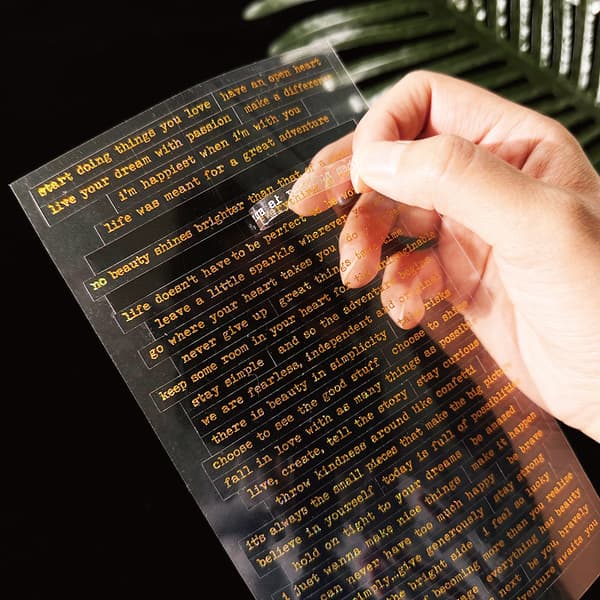 start doing things you love have an open heart
live your dream with passion make a difference
i'm happiest when i'm with you
life was meant for a great adventure
no beauty shines brighter than that of a
life doesn't have to be perfect to be wo
leave a little sparkle wherever y
go where your heart takes you do
never give up great things take time
keep some room in your heart for the unimaginable
stay simple and so the adventure begins
we are fearless, independent and
there is beauty in simplicity risks
choose to see the good stuff choose to shine
fall in love with as many things as possible
live, create, tell the story stay curious
throw kindness around like confetti
it's always the small pieces that make the big picture
believe in yourself today is full of possibilities
hold on tight to your dreams be amazed
i just wanna make nice things make it happen
can never have too much happy be brave
simply...give generously stay strong
the bright side i feel so lucky
of becoming more than you realise
age everything as beauty
next be you, bravely
adventure awaits you